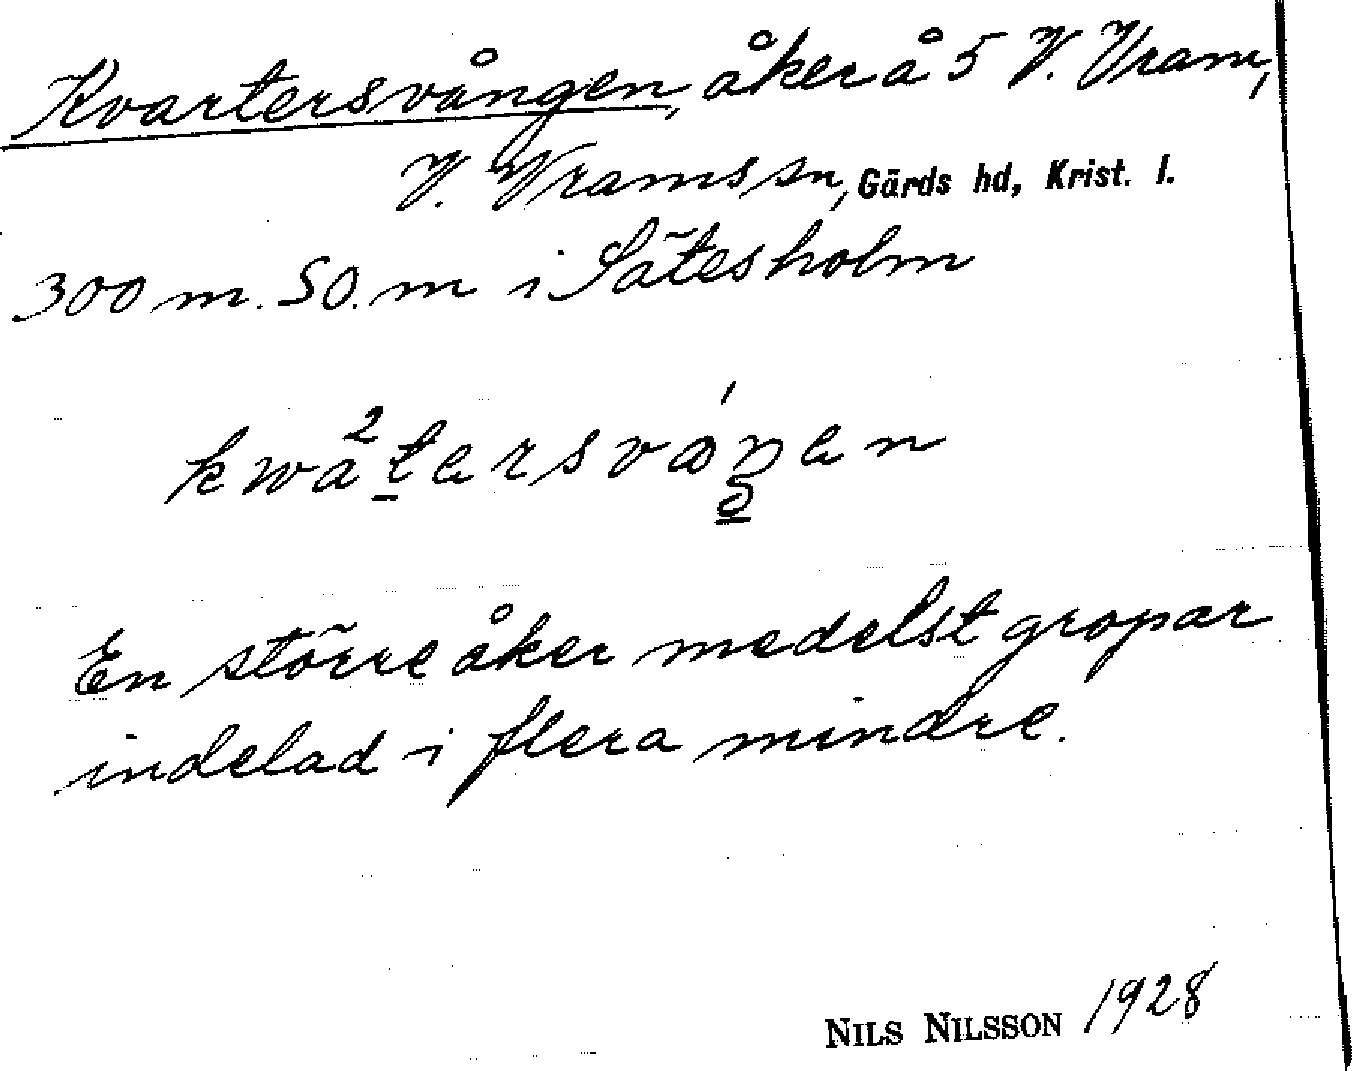 Kvartersvången, åker å 5 V. Vram,
V. Vrams sn, Gärds hd, Krist. l.
300 m. SO. m i Sätesholm
kwa²tersvǻŋen
En större åker medelst gropar
indelad i flera mindre.
NILS NILSSON 1928